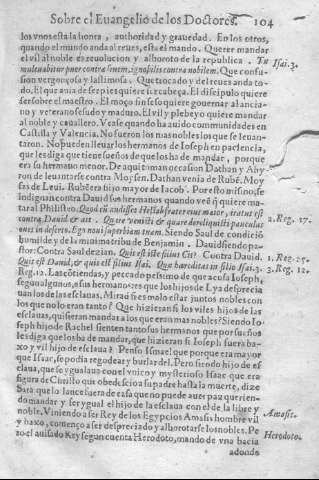 Sobre el Euangelio de los Doctores. 104
los vnos esta la honra, authoridad y grauedad. En los otros,
quando el mundo anda al reues, esta el mando. Querer mandar
el vil al noble es reuolucion y alboroto de la republica. Tu
Isai.3.
multuabitur puer contra senem, ignobilis contra nobilem. Que confu-
sion vergonçosa y lastimosa. Que trocado y del reues anda to-
do. El que auia de ser pies quiere ser cabeça. El discipulo quiere
ser sobre el maestro. El moço sin seso quiere gouernar al ancia-
no y veterano sesudo y maduro. El vil y plebeyo quiere mandar
al noble y cauallero. Vease quando ha auido comunidades en
Castilla y Valencia. No fueron los mas nobles los que se leuan-
taron. No pueden lleuar los hermanos de Ioseph en paciencia,
que les diga que tiene sueños de que los ha de mandar, porque
era su hermano menor. De aqui toman ocasion Dathan y Aby-
ron de leuantarse contra Moysen. Dathan venia de Rubē. Moy
ses de Leui. Rubē era hijo mayor de Iacob. Por esto mismo, se
indignan contra Dauid sus hermanos quando veē q̃ quiere ma-
tar al Philisteo. Quod cū audisset Heliab frater eius maior, iratus est
2. Reg. 17.
contra Dauid & ait. Quare venisti & quare dereliquisti pauculas
oues in deserto. Ego noui superbiam tuam. Siendo Saul de condiciō
humilde y de la minima tribu de Benjamin. Dauid siendo pa-
stor: Contra Saul dezian. Quis est iste filius Cis? Contra Dauid.
1. Reg. 25.
Quis est Dauid, & quis est filius Isai. Quæ hæreditas in filio Isai. 3.
3. Reg. 12.
Reg. 12. Las contiendas, y peccado pessimo de que acusa Ioseph,
segun algunos, a sus hermanos: es que los hijos de Lya desprecia
uan los de las esclauas. Mirad si es malo estar juntos nobles con
los que no lo eran tanto? Que hizieran si los viles hijos de las
esclauas, quisieran mandar a los que eran mas nobles? Siendo Io-
seph hijo de Rachel sienten tanto sus hermanos que por sueños
les diga que los ha de mandar, que hizieran si Ioseph fuera ba-
xo y vil hijo de esclaua? Penso Ismael que porque era mayor
que Isaac, se podia regodear y burlar del. Pero siendo hijo de es
claua, que se yguala ua con el vnico y mysterioso Isaac que era
figura de Christo que obedescio a su padre hasta la muerte, dize
Sara que lo lance fuera de casa que no puede auer paz querien-
do mandar y ser ygual el hijo de la esclaua con el de la libre y
noble. Viniendo a ser Rey de los Egypcios Amasis hombre vil
Amasis.
y baxo, començo a ser despreciado y alborotarse los nobles. Pe
ro el auisado Rey segun cuenta Herodoto, mando de vna bacia
Herodoto.
adonde